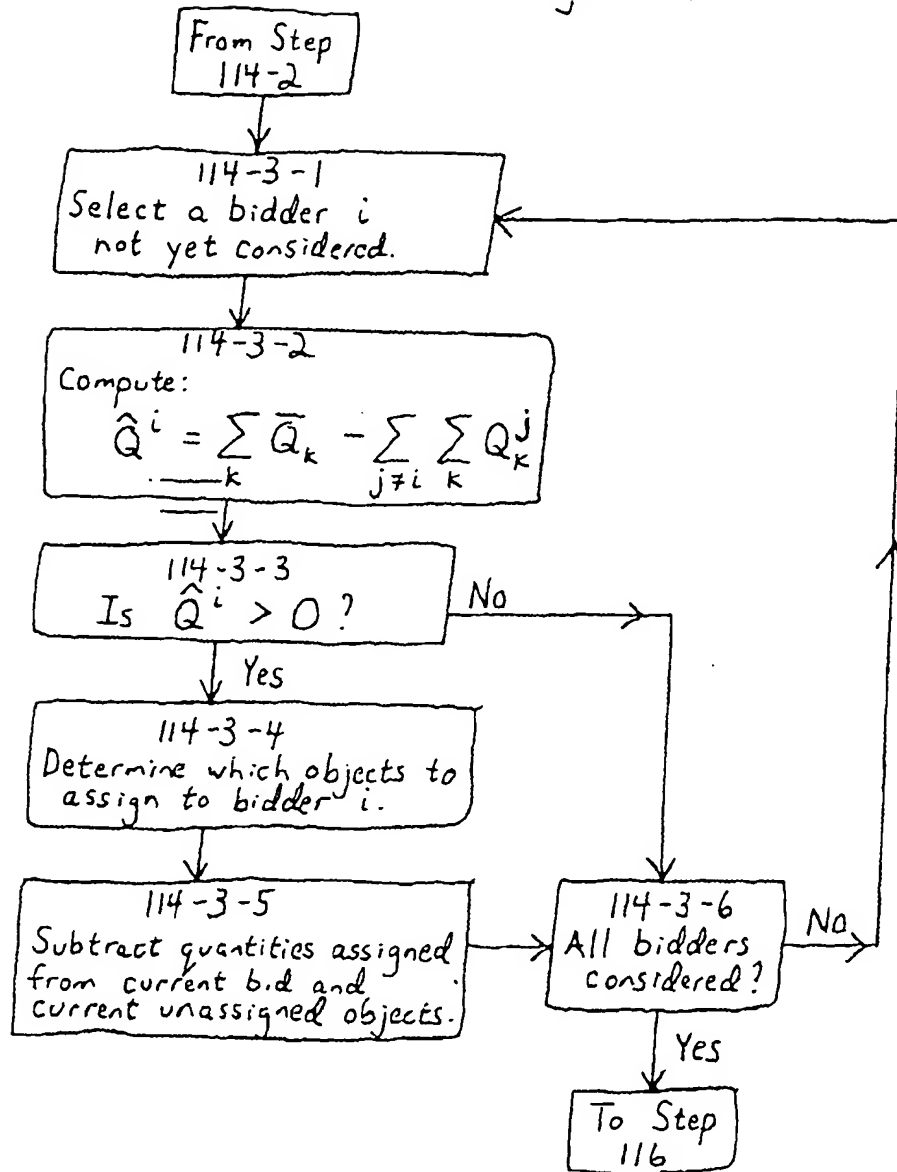 From Step
114-2
114-3-1
Select a bidder i
not yet considered.
114-3-2
Compute:
Q̂ⁱ = ∑ₖ Q̅ₖ - ∑_{j≠i} ∑ₖ Qₖʲ
114-3-3
Is Q̂ⁱ > 0?
No
Yes
114-3-4
Determine which objects to
assign to bidder i.
114-3-5
Subtract quantities assigned
from current bid and
current unassigned objects.
114-3-6
All bidders
considered?
No
Yes
To Step
116